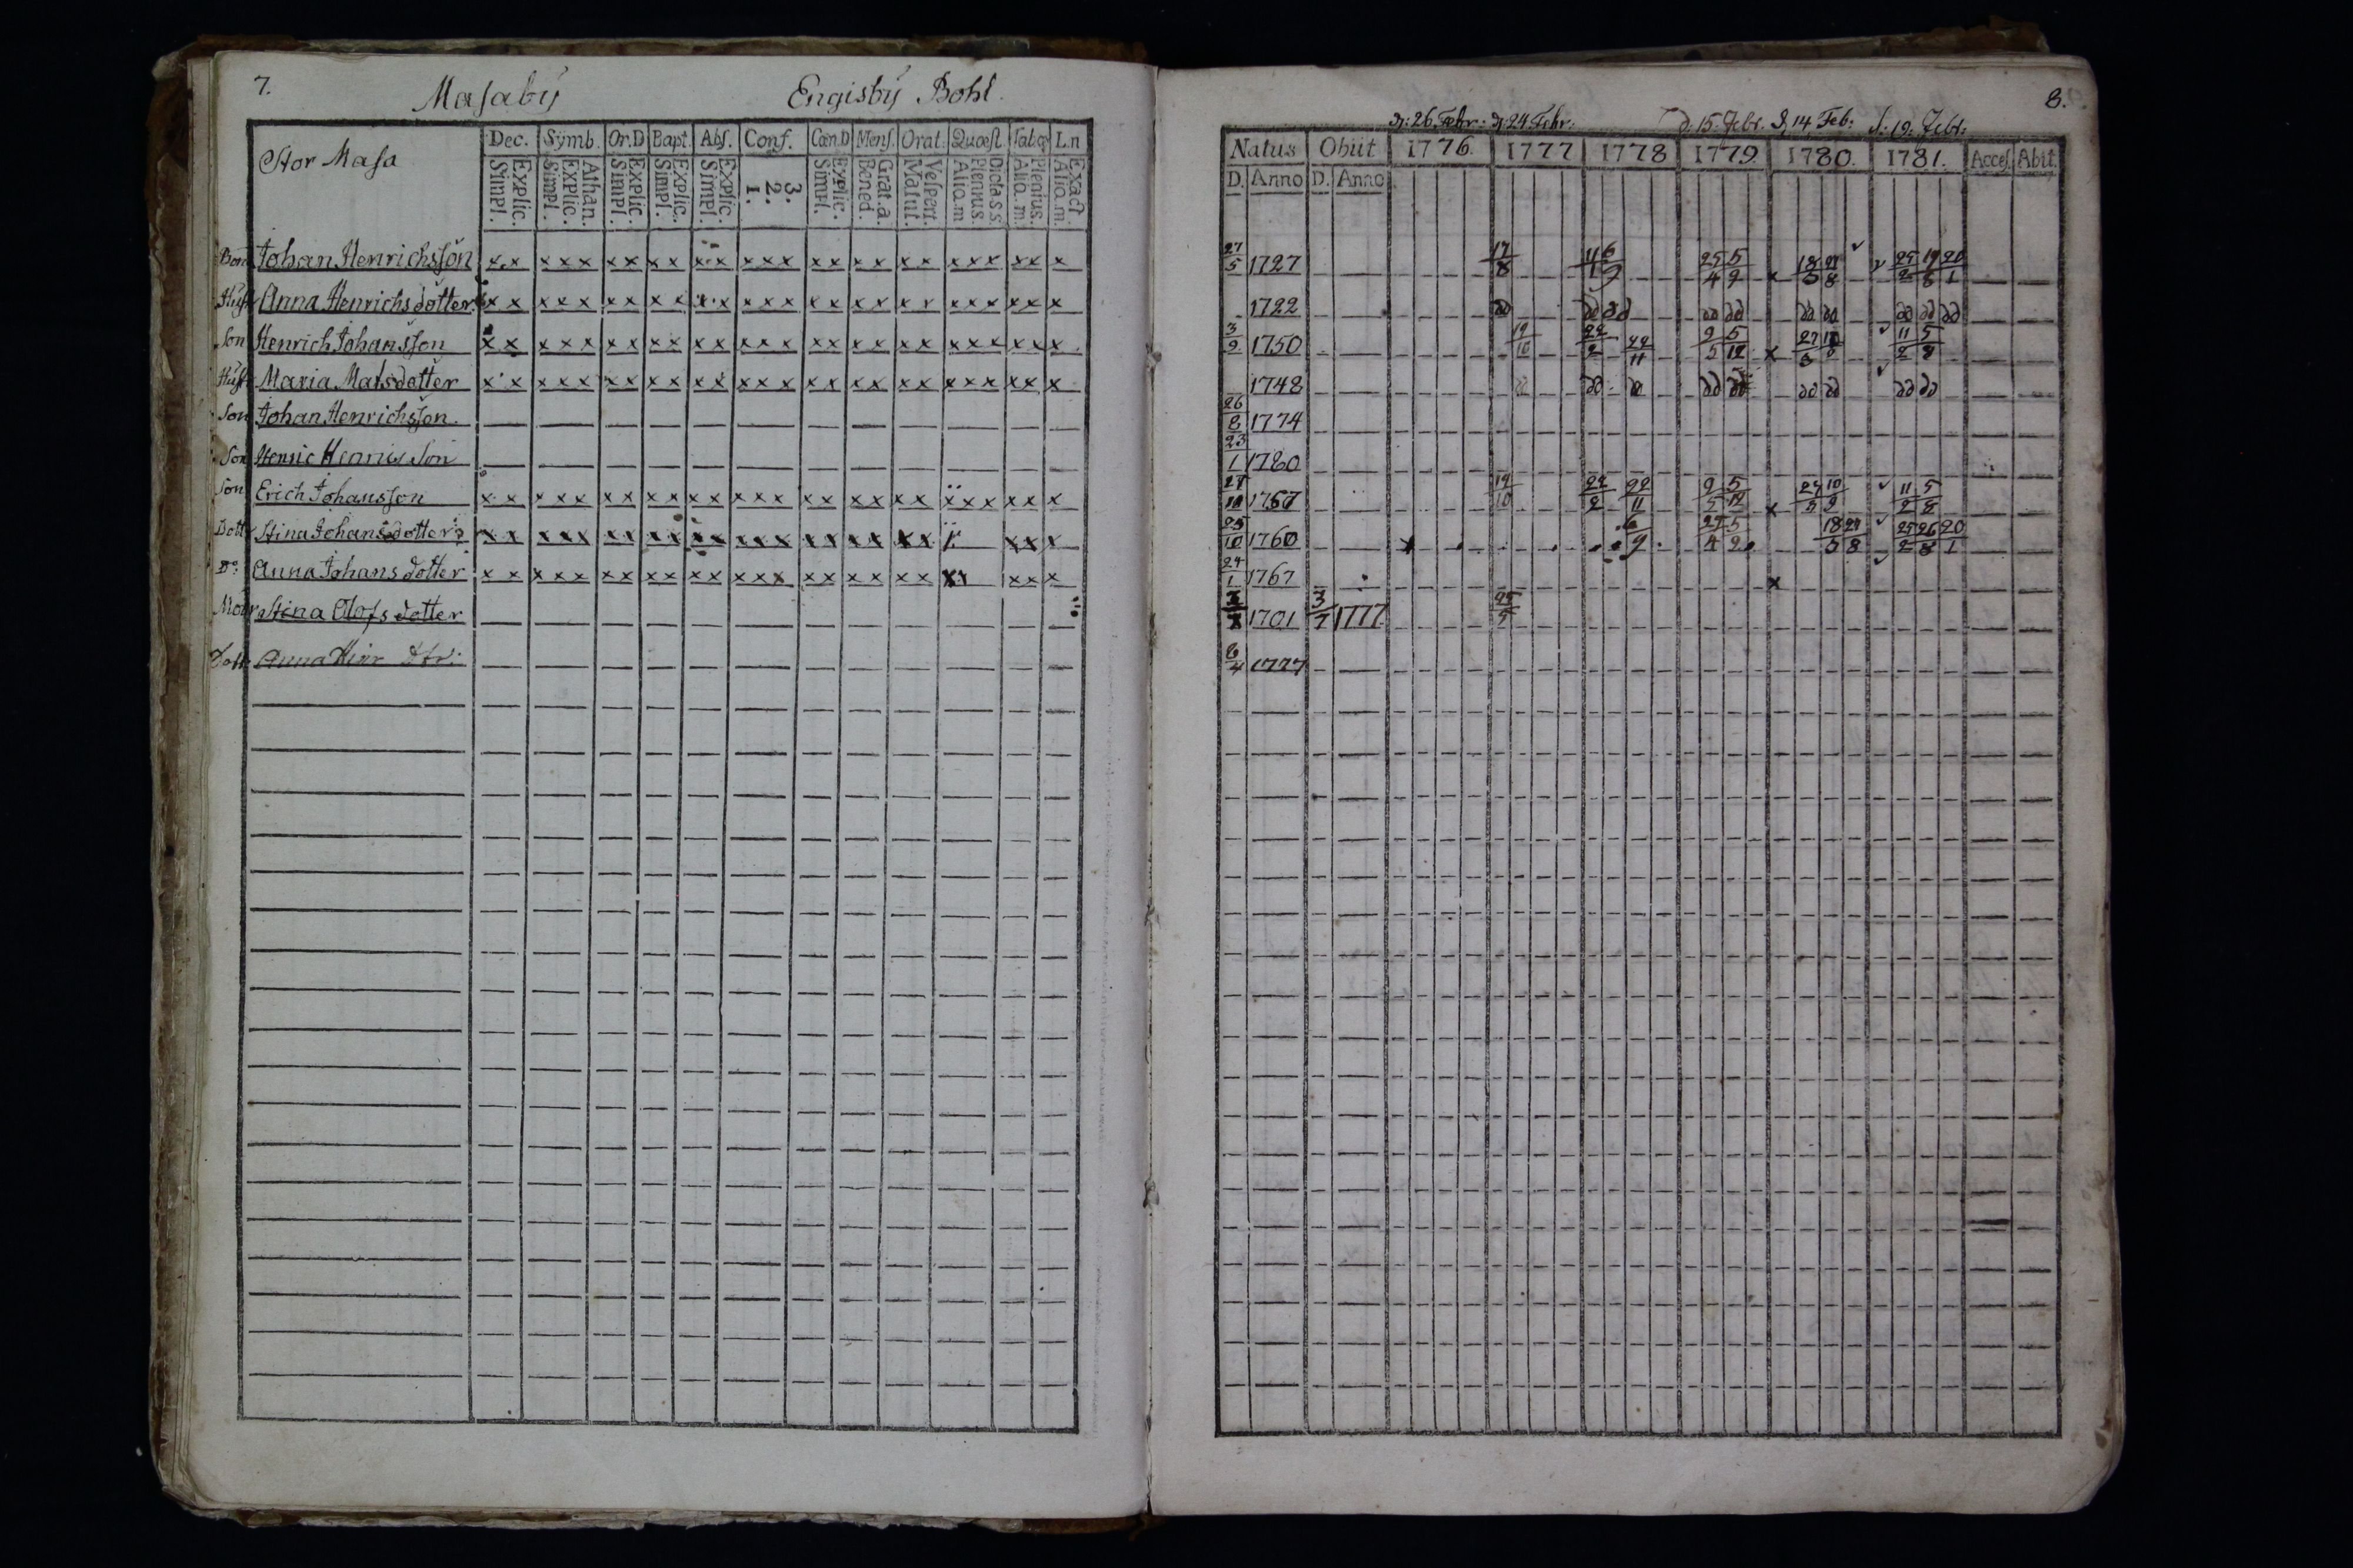 7.
Masaby Engisby Bohl.
Stor Masa
Dec. Symb. Or.D Bapt. Abs. Conf. Cœn.D Mens. Orat. Quæst. Tab.œ L.n
Explic. Simpl. Athan. Explic. Simpl. Explic. Simpl. Explic. Simpl. Explic. Simpl. 3. 2. 1. Explic. Simpl. Grat.a. Bened. Vespert. Matut. Dicta s s. Plenius. Aliq.m Plenius. Aliq.m. Exact. Aliq.m.
Bon Johan Henrichsson x x x x x x x x x x x x x x x x x x x x x x x x x x x
Hust Anna Henrichsdotter x x x x x x x x x x x x x x x x x x x x x x x x x x
Son Henrich Johansson x x x x x x x x x x x x x x x x x x x x x x x x x x
Hust Maria Matsdotter x x x x x x x x x x x x x x x x x x x x x x x x x x
Son Johan Henrichsson
Son Henric Henricsson
Son Erich Johansson x x x x x x x x x x x x x x x x x x x x x x x x x x
Dott Stina Johansdotter x x x x x x x x x x x x x x x x x x x x x x x
Do Anna Johansdotter x x x x x x x x x x x x x x x x x x x x x x x
Modr Stina Olofsdotter
Dott Anna Hinr dtr:
8.
d: 26. Febr: d. 24 Febr: d. 15. Febr. d. 14 Feb: d: 19. Febr:
Natus Obiit 1776. 1777 1778 1779 1780. 1781. Acces. Abit.
D. Anno D. Anno
27/5 1727 17/8 11/1 6/9 25/4 5/9 x 18/3 27/8 25/2 19/8 20/1
1722 do do do do do do do do do do
3/9 1750 19/10 22/2 22/11 9/5 5/12 x 11/2 5/8
1748 do do do do do do do do do
26/8 1774
23/1 1780
1757 19/10 22/2 22/11 9/5 5/12 x 11/2 5/8
25/10 1760 6/9 25/4 5/9 18/3 27/8 25/2 26/8 20/1
24/1 1767 x
1701 3/7 1777 25/5
6/4 1777